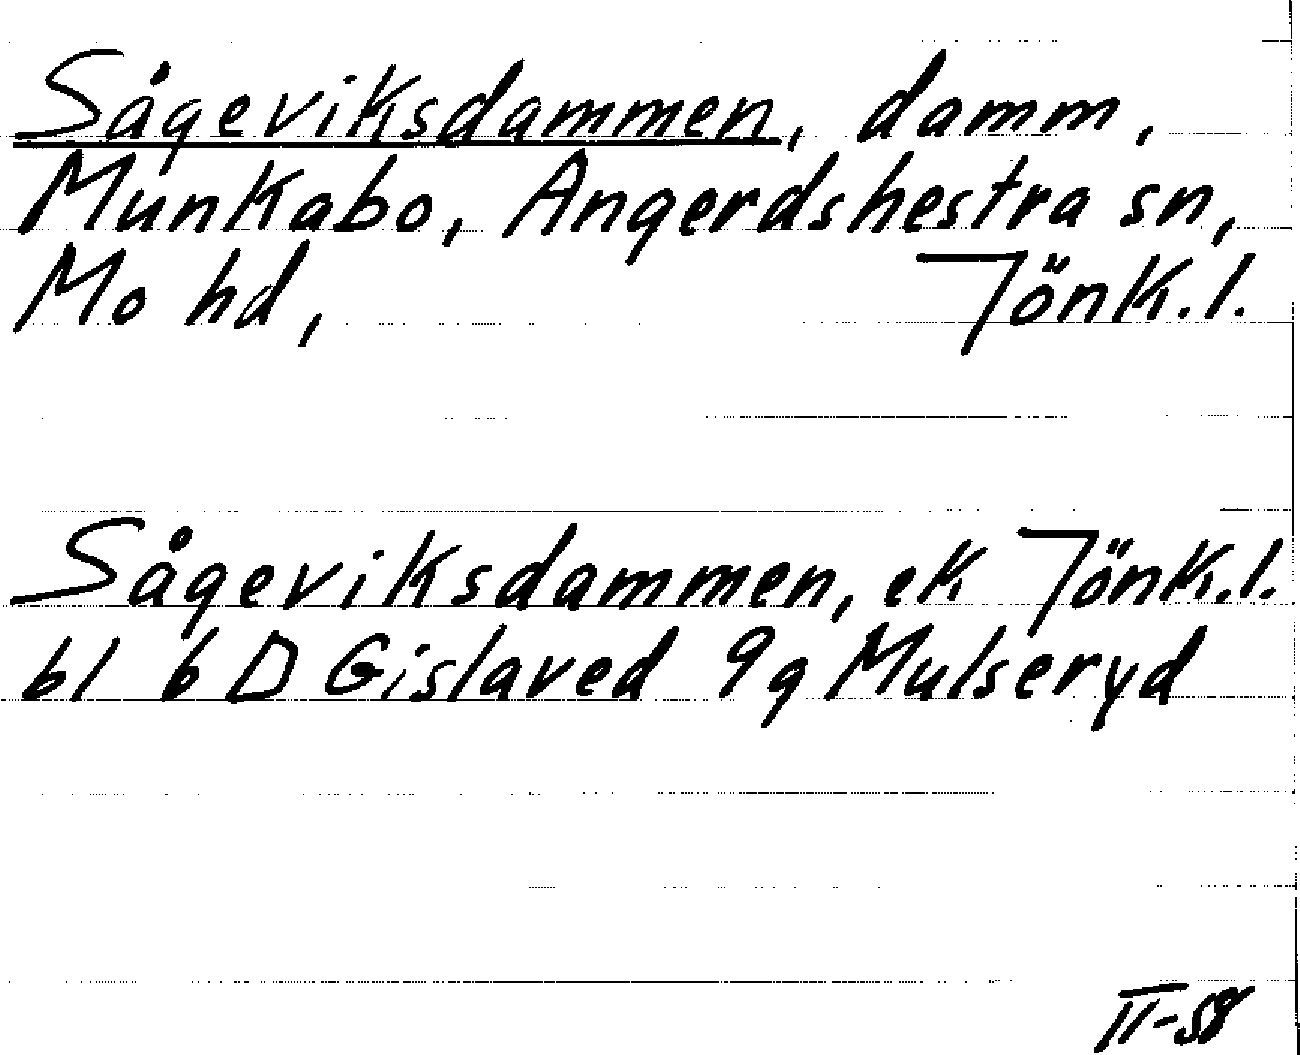 Sågeviksdammen, damm,
Munkabo, Angerdshestra sn,
Mo hd, Jönk.l.
Sågeviksdammen, ek Jönk.l.
bl 6 D Gislaved 9g Mulseryd
II-58